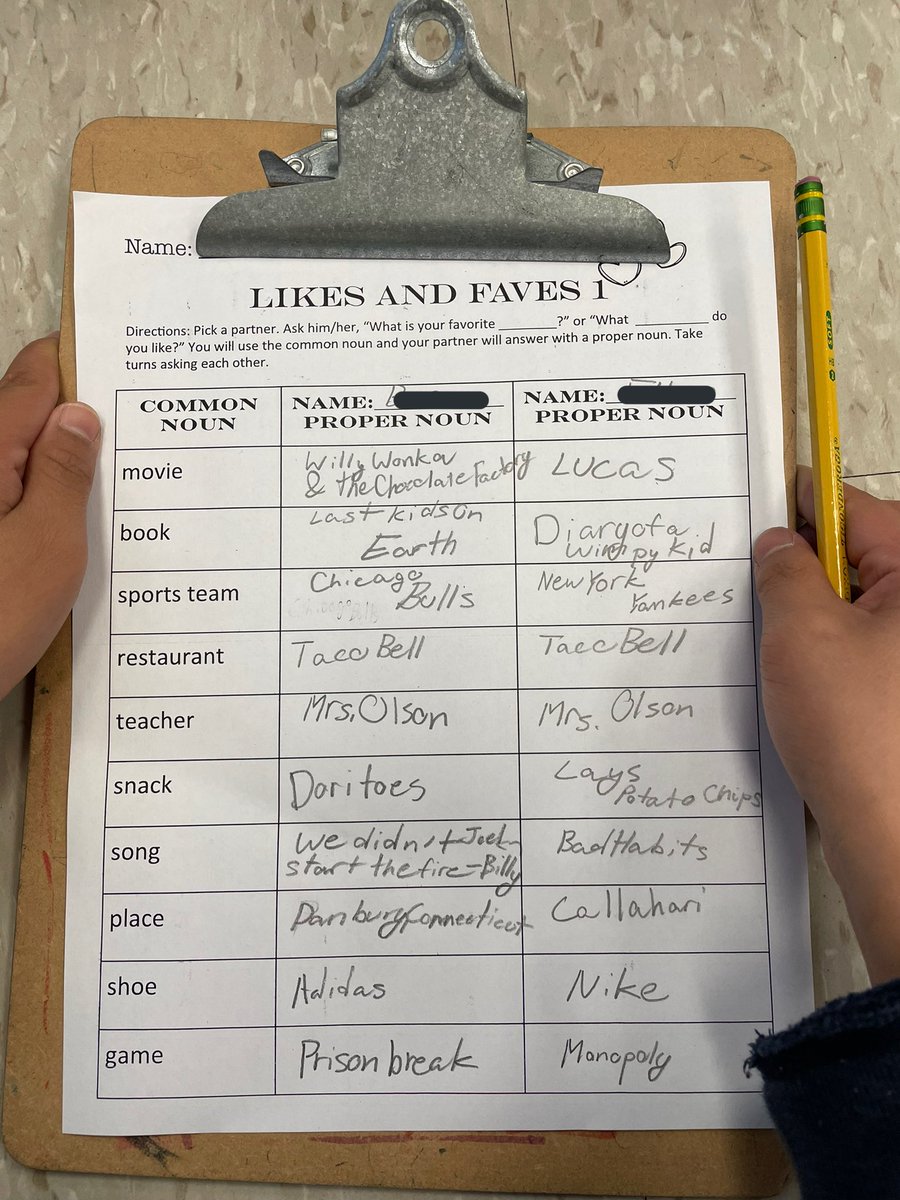 Name:
LIKES AND FAVES 1
Directions: Pick a partner. Ask him/her, “What is your favorite _________?” or “What ___________ do
you like?” You will use the common noun and your partner will answer with a proper noun. Take
turns asking each other.
COMMON
NOUN
NAME:
PROPER NOUN
NAME:
PROPER NOUN
movie
Willy Wonka
& the Chocolate Factory
Lucas
book
Last kids On
Earth
Diary of a
wimpy kid
sports team
Chicago
Bulls
New York
Yankees
restaurant
Taco Bell
Taco Bell
teacher
Mrs. Olson
Mrs. Olson
snack
Doritoes
Lays
Potato Chips
song
We didn't Joel
start the fire-Billy
Bad Habits
place
Danbury Connecticut
Callahari
shoe
Adidas
Nike
game
Prison break
Monopoly
TICONDEROGA®
SOFT